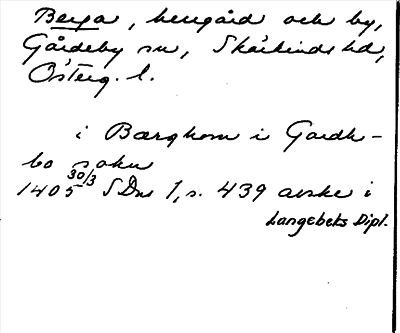 Berga, herrgård och by,
Gårdeby sn, Skärkinds hd,
Österg. l.
i Bærghom i Gordh-
bo sokn
1405 30/3 SDns 1, s. 439 avskr i
Langebeks Dipl.